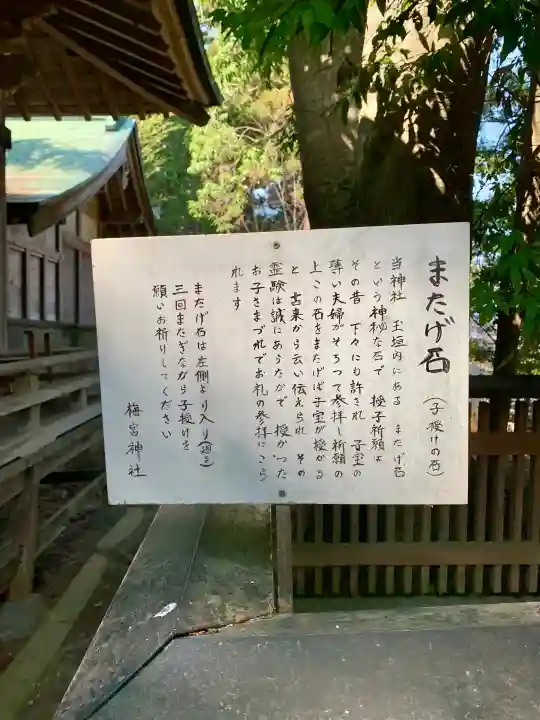 またげ石(子授けの石)
当神社 玉垣内にある またげ石
という神秘な石で 授子祈願は
その昔 下々にも許され 子宝の
薄い夫婦がそろって参拝し祈願の
上この石をまたげば子宝が授かる
と 古来から云い伝えられ その
霊験は誠にあらたかで 授かった
お子さまづれでお礼の参拝にこら
れます
またげ石は左側より入り(廻る)
三回またぎながら子授けを
願いお祈りしてください
梅宮神社